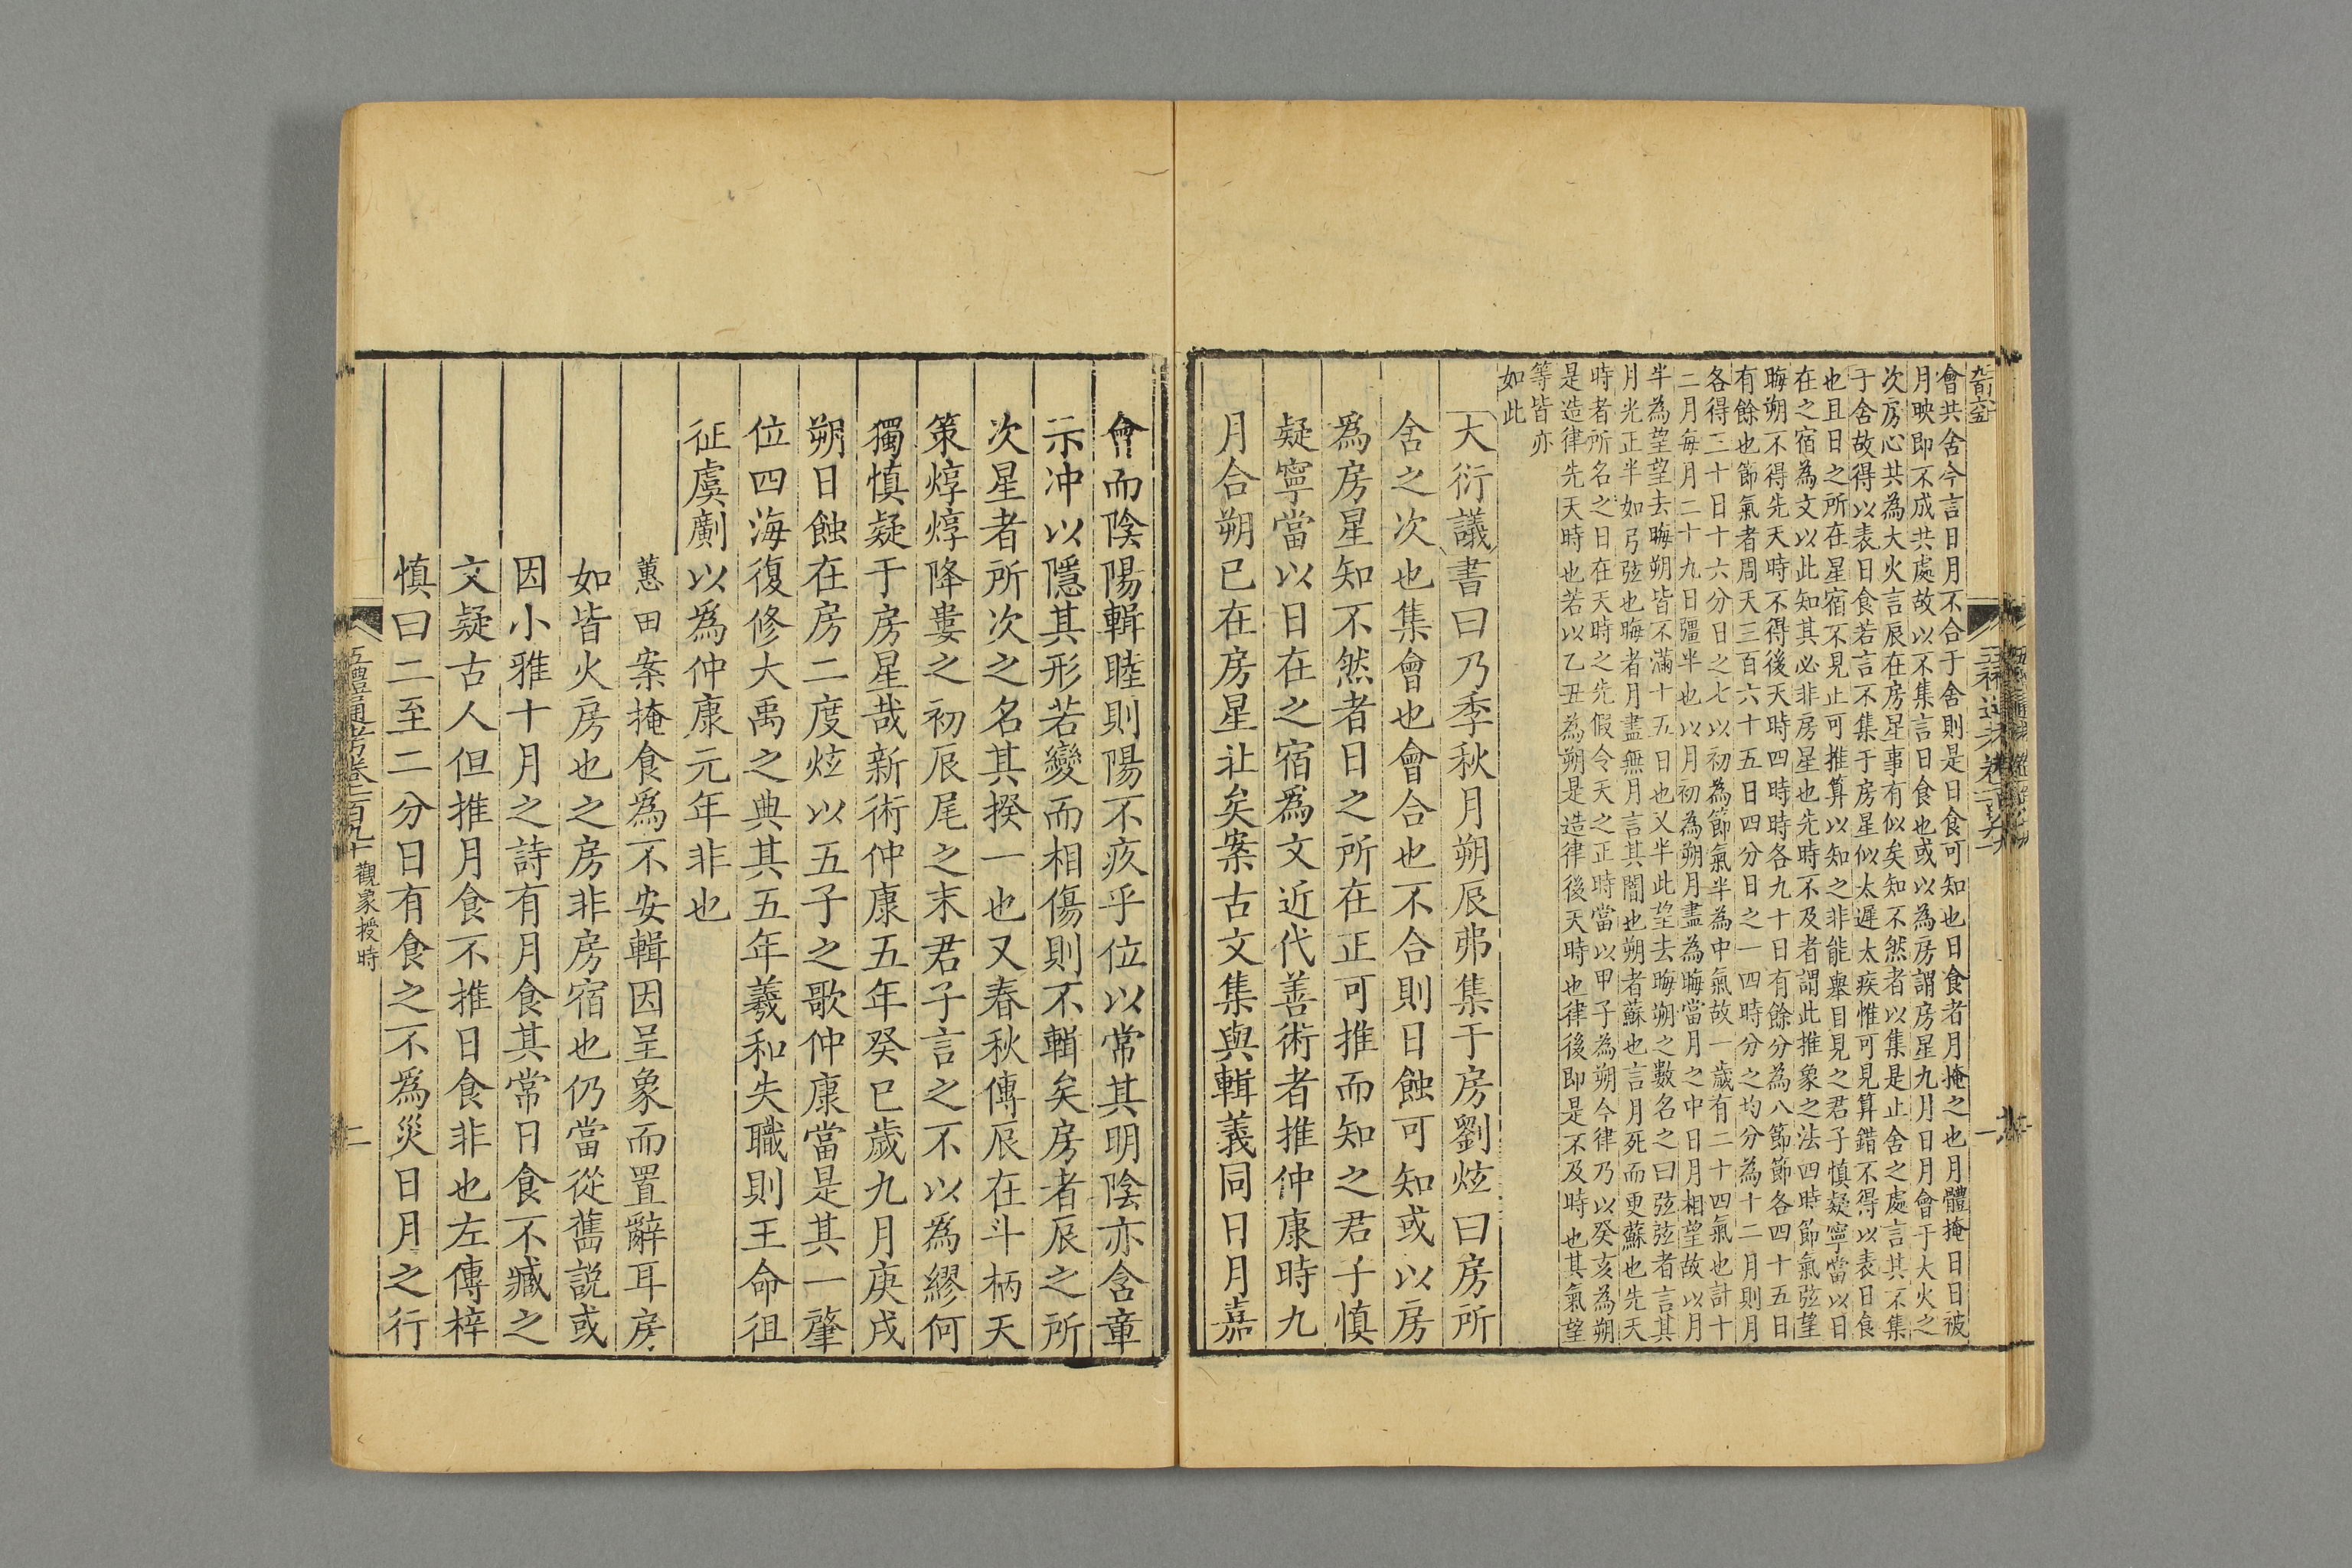 會共舍今言日月不合于舍則是日食可知也日食者月掩之也月體掩日日被
月映即不成共處故以不集言日食也或以為房謂房星九月日月會于大火之
次房心共為大火言辰在房星事有似矣知不然者以集是止舍之處言其不集
于舍故得以表日食若言不集于房星似太遲太疾惟可見算錯不得以表日食
也且日之所在星宿不見止可推算以知之非能舉目見之君子慎疑寧當以日
在之宿為文以此知其必非房星也先時不及者謂此推象之法四時節氣弦望
晦朔不得先天時不得後天時四時時各九十日有餘分為八節節各四十五日
有餘也節氣者周天三百六十五日四分日之一四時分之均分為十二月則月
各得三十日十六分日之七以初為節氣半為中氣故一歲有二十四氣也計十
二月每月二十九日彊半也以月初為朔月盡為晦當月之中日月相望故以月
半為望望去晦朔皆不滿十五日也又半此望去晦朔之數名之曰弦弦者言其
月光正半如弓弦也晦者月盡無月言其闇也朔者蘇也言月死而更蘇也先天
時者所名之日在天時之先假令天之正時當以甲子為朔今律乃以癸亥為朔
是造律先天時也若以乙丑為朔是造律後天時也律後即是不及時也其氣望
等皆亦
如此
大衍議書曰乃季秋月朔辰弗集于房劉炫曰房所
舍之次也集會也會合也不合則日蝕可知或以房
為房星知不然者日之所在正可推而知之君子慎
疑寧當以日在之宿為文近代善術者推仲康時九
月合朔已在房星北矣案古文集與輯義同日月嘉
會而陰陽輯睦則陽不疚乎位以常其明陰亦含章
示冲以隱其形若變而相傷則不輯矣房者辰之所
次星者所次之名其揆一也又春秋傳辰在斗柄天
策焞焞降婁之初辰尾之末君子言之不以為繆何
獨慎疑于房星哉新術仲康五年癸巳歲九月庚戌
朔日蝕在房二度炫以五子之歌仲康當是其一肇
位四海復修大禹之典其五年羲和失職則王命徂
征虞𠠎以為仲康元年非也
蕙田案掩食為不安輯因呈象而置辭耳房
如皆火房也之房非房宿也仍當從舊說或
因小雅十月之詩有月食其常日食不臧之
文疑古人但推月食不推日食非也左傳梓
慎曰二至二分日有食之不為災日月之行
五禮通考卷一百九十 觀象授時
二